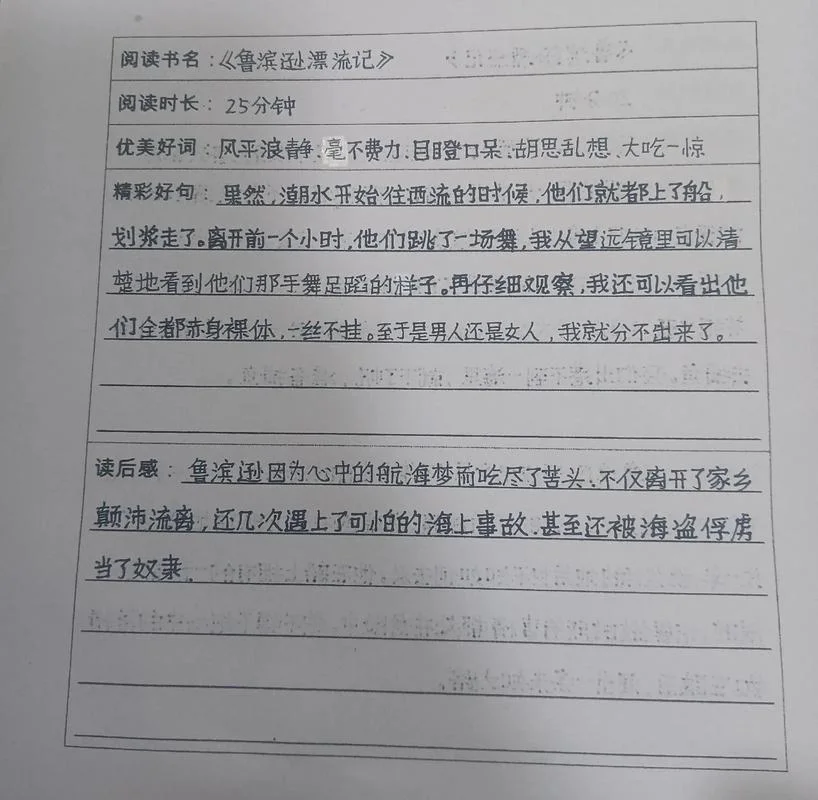 阅读书名：《鲁滨逊漂流记》
阅读时长：25分钟
优美好词：风平浪静、毫不费力、目瞪口呆、胡思乱想、大吃一惊
精彩好句：果然，潮水开始往西流的时候，他们就都上了船，
划浆走了。离开前一个小时，他们跳了一场舞，我从望远镜里可以清
楚地看到他们那手舞足蹈的样子。再仔细观察，我还可以看出他
们全都赤身裸体，一丝不挂。至于是男人还是女人，我就分不出来了。
读后感：鲁滨逊因为心中的航海梦而吃尽了苦头、不仅离开了家乡
颠沛流离，还几次遇上了可怕的海上事故、甚至还被海盗俘虏
当了奴隶、